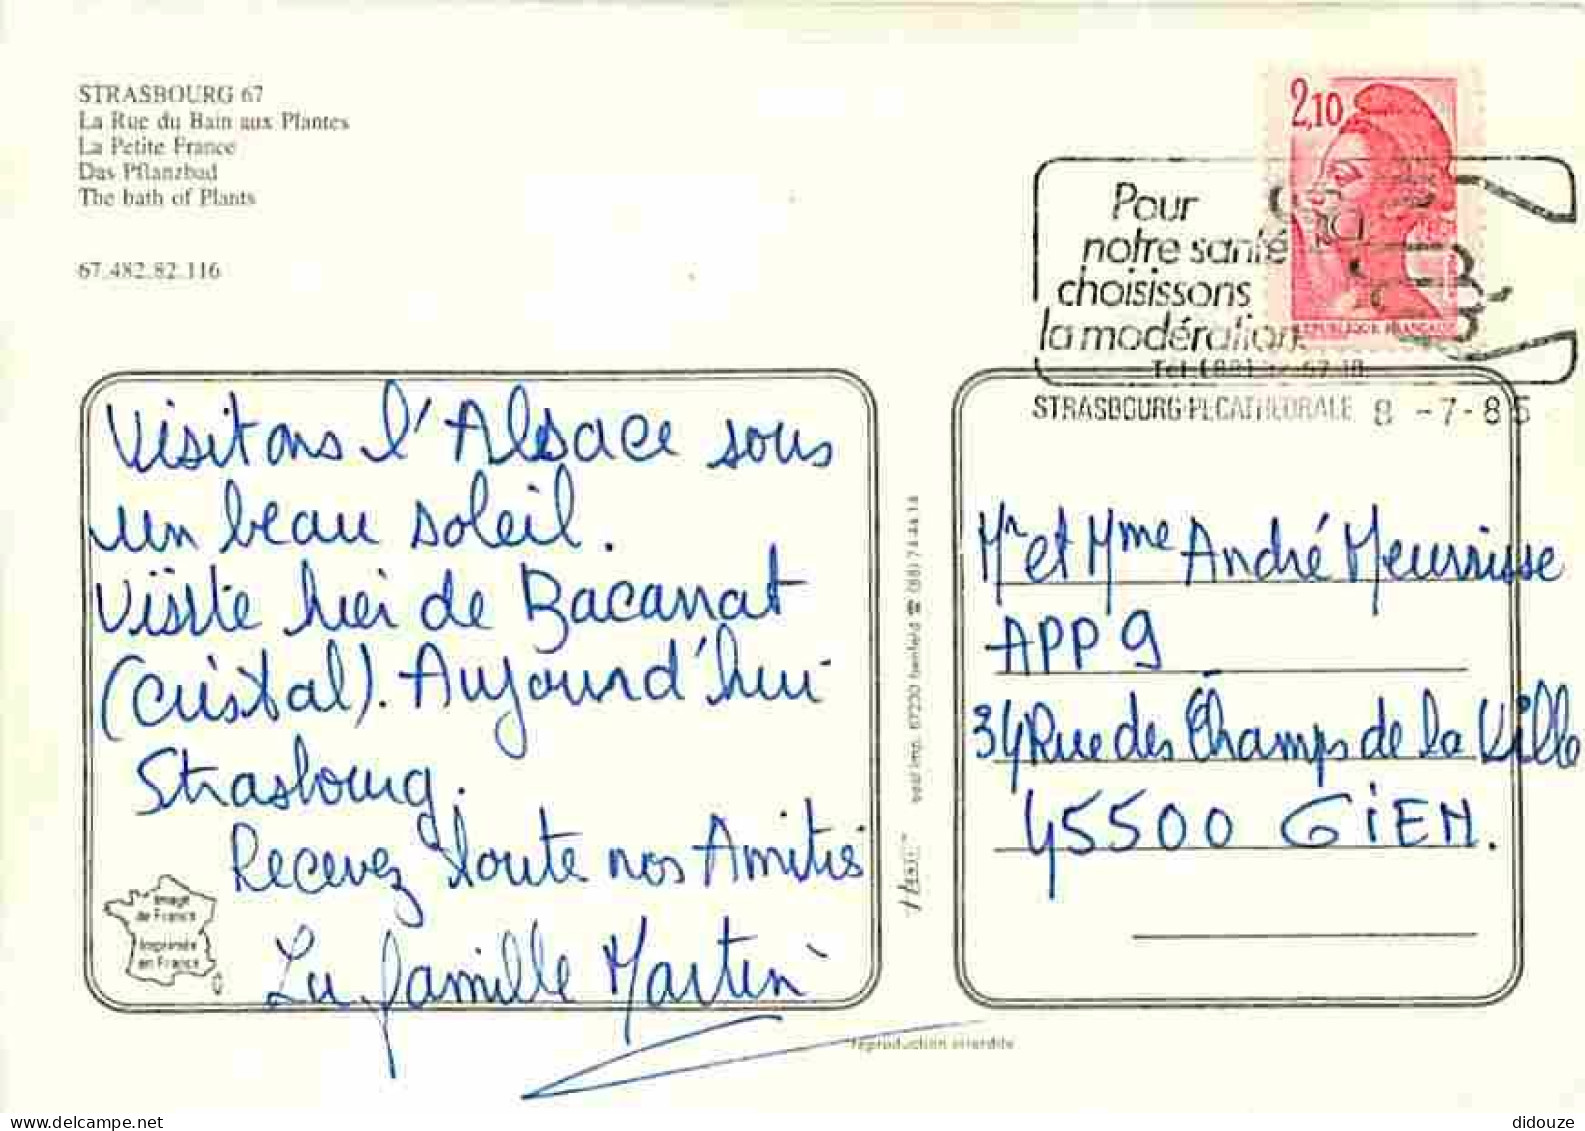 STRASBOURG 67
La Rue du Bain aux Plantes
La Petite France
Das Pflanzbad
The bath of Plants
67.482.82.116
2,10
REPUBLIQUE FRANÇAISE
Pour
notre santé
choisissons
la modération
STRASBOURG PL CATHEDRALE 8 -7-85
Visitons l'Alsace sous
un beau soleil.
Visite hier de Bacarrat
(cristal). Aujourd'hui
Strasbourg.
Recevez toute nos Amitiés
La famille Martin
Image
de France
Imprimée
en France
67230 benfeld ☎ (88) 74 44 14
Mr et Mme André Meurisse
APP 9
34 Rue des Champs de la Ville
45500 GiEN.
reproduction interdite
didouze